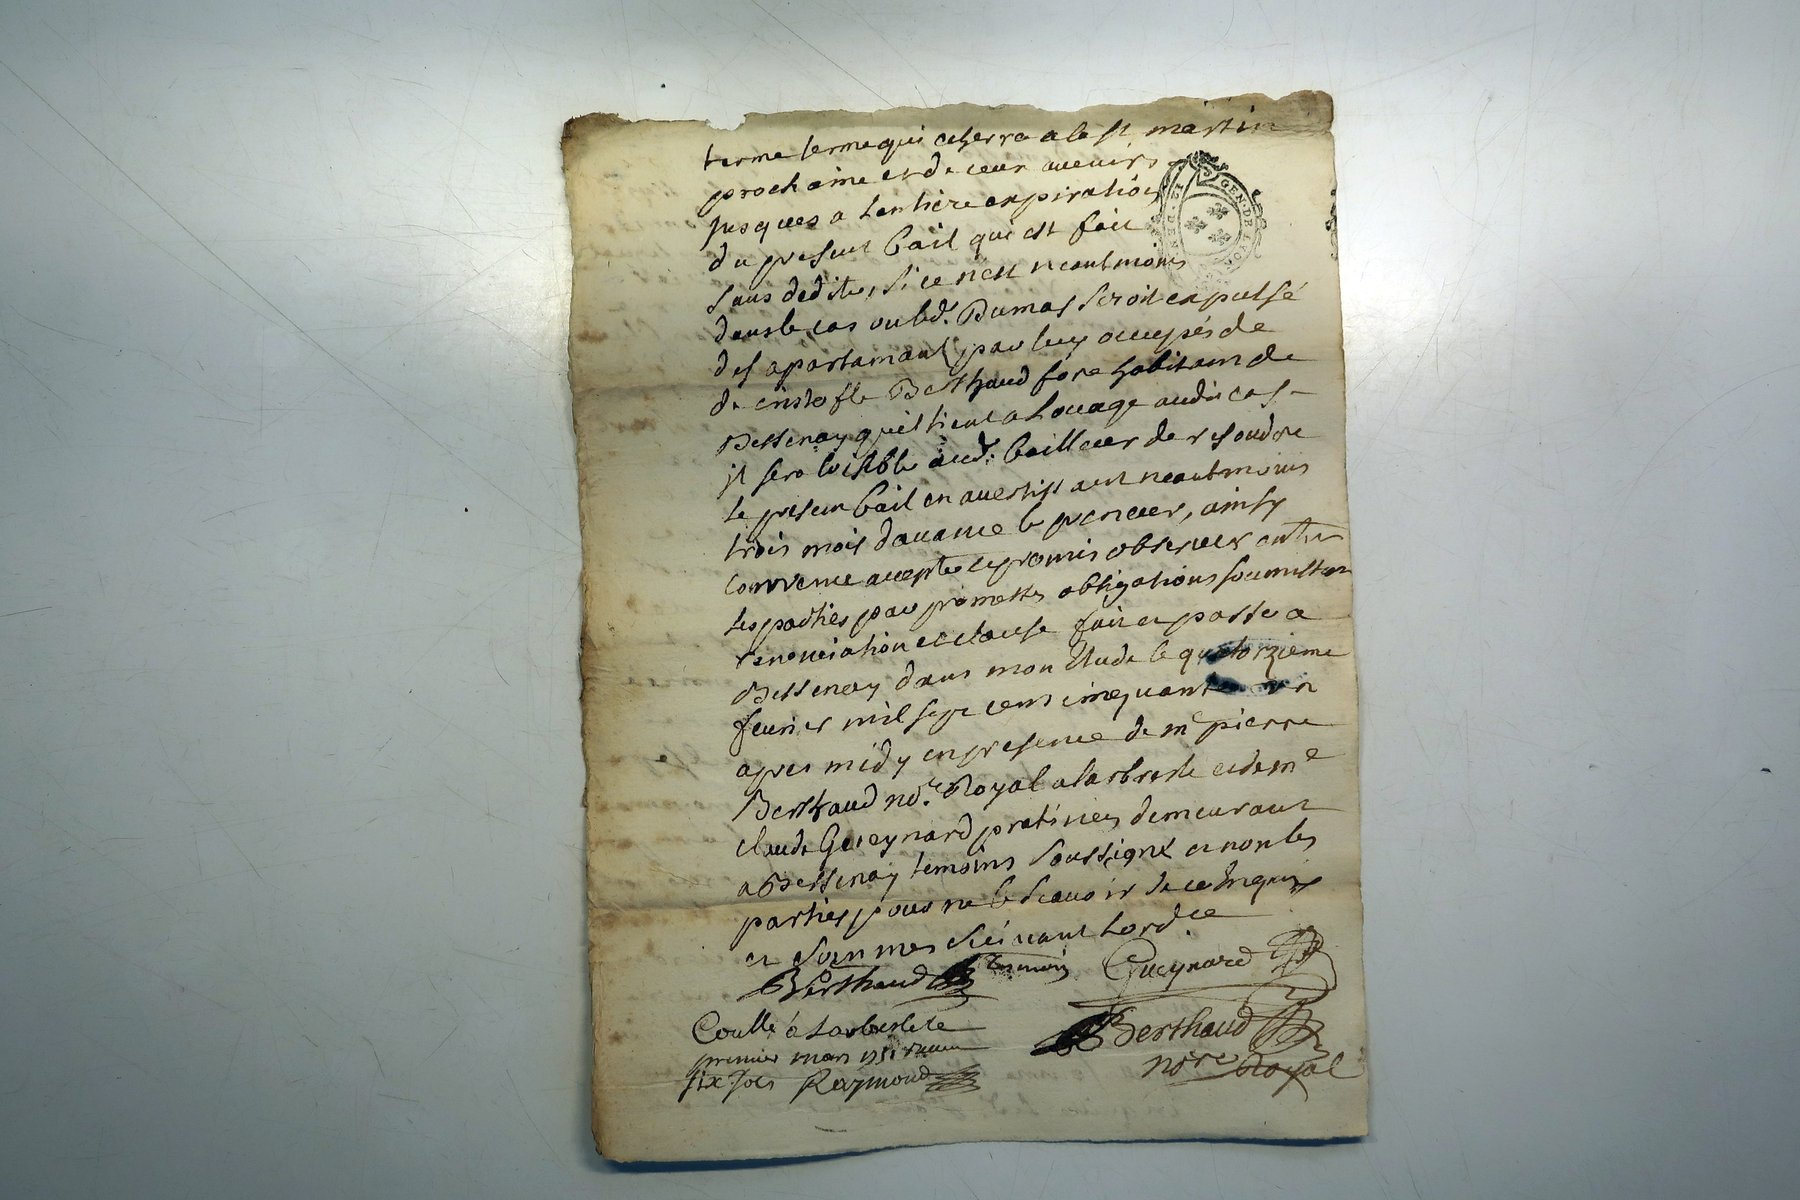 terme terme qui echerra a la st martin
prochaine et de ceux avenirs
jusques a lentiere expiration
du present bail qui est fait
sans dedite, si ce n'est neantmoins
dans le cas ou led. Dumas seroit expulsé
des apartamant par luy occupés de
de cristofle Berthaud fore habitant de
Bessenay quil tient a Louage audit cas
jl sera loisible aud. bailleur de resoudre
Le present bail en avertissant neantmoins
trois mois davance le preneur, ainsy
convenu accepté et promis observer entre
Les parties par promesses obligations soumissions
renonciation et clause fait et passé a
Bessenay dans mon Etude le quatorzieme
fevrier mil sept cent cinquante un
apres midy en presence de me pierre
Berthaud nore. Royal a larbresle et de me
claude Gueynard praticien demeurant
a Bessenay temoins soussignés et non les
parties pour ne le scavoir de ce Enquis
et sommes suivant Lord.ce
Berthaud temoin Gueynard
Collé a Larbresle le
premier mars 1751
six sols Raymond
Berthaud
nore Royal
GEN. DE LYON